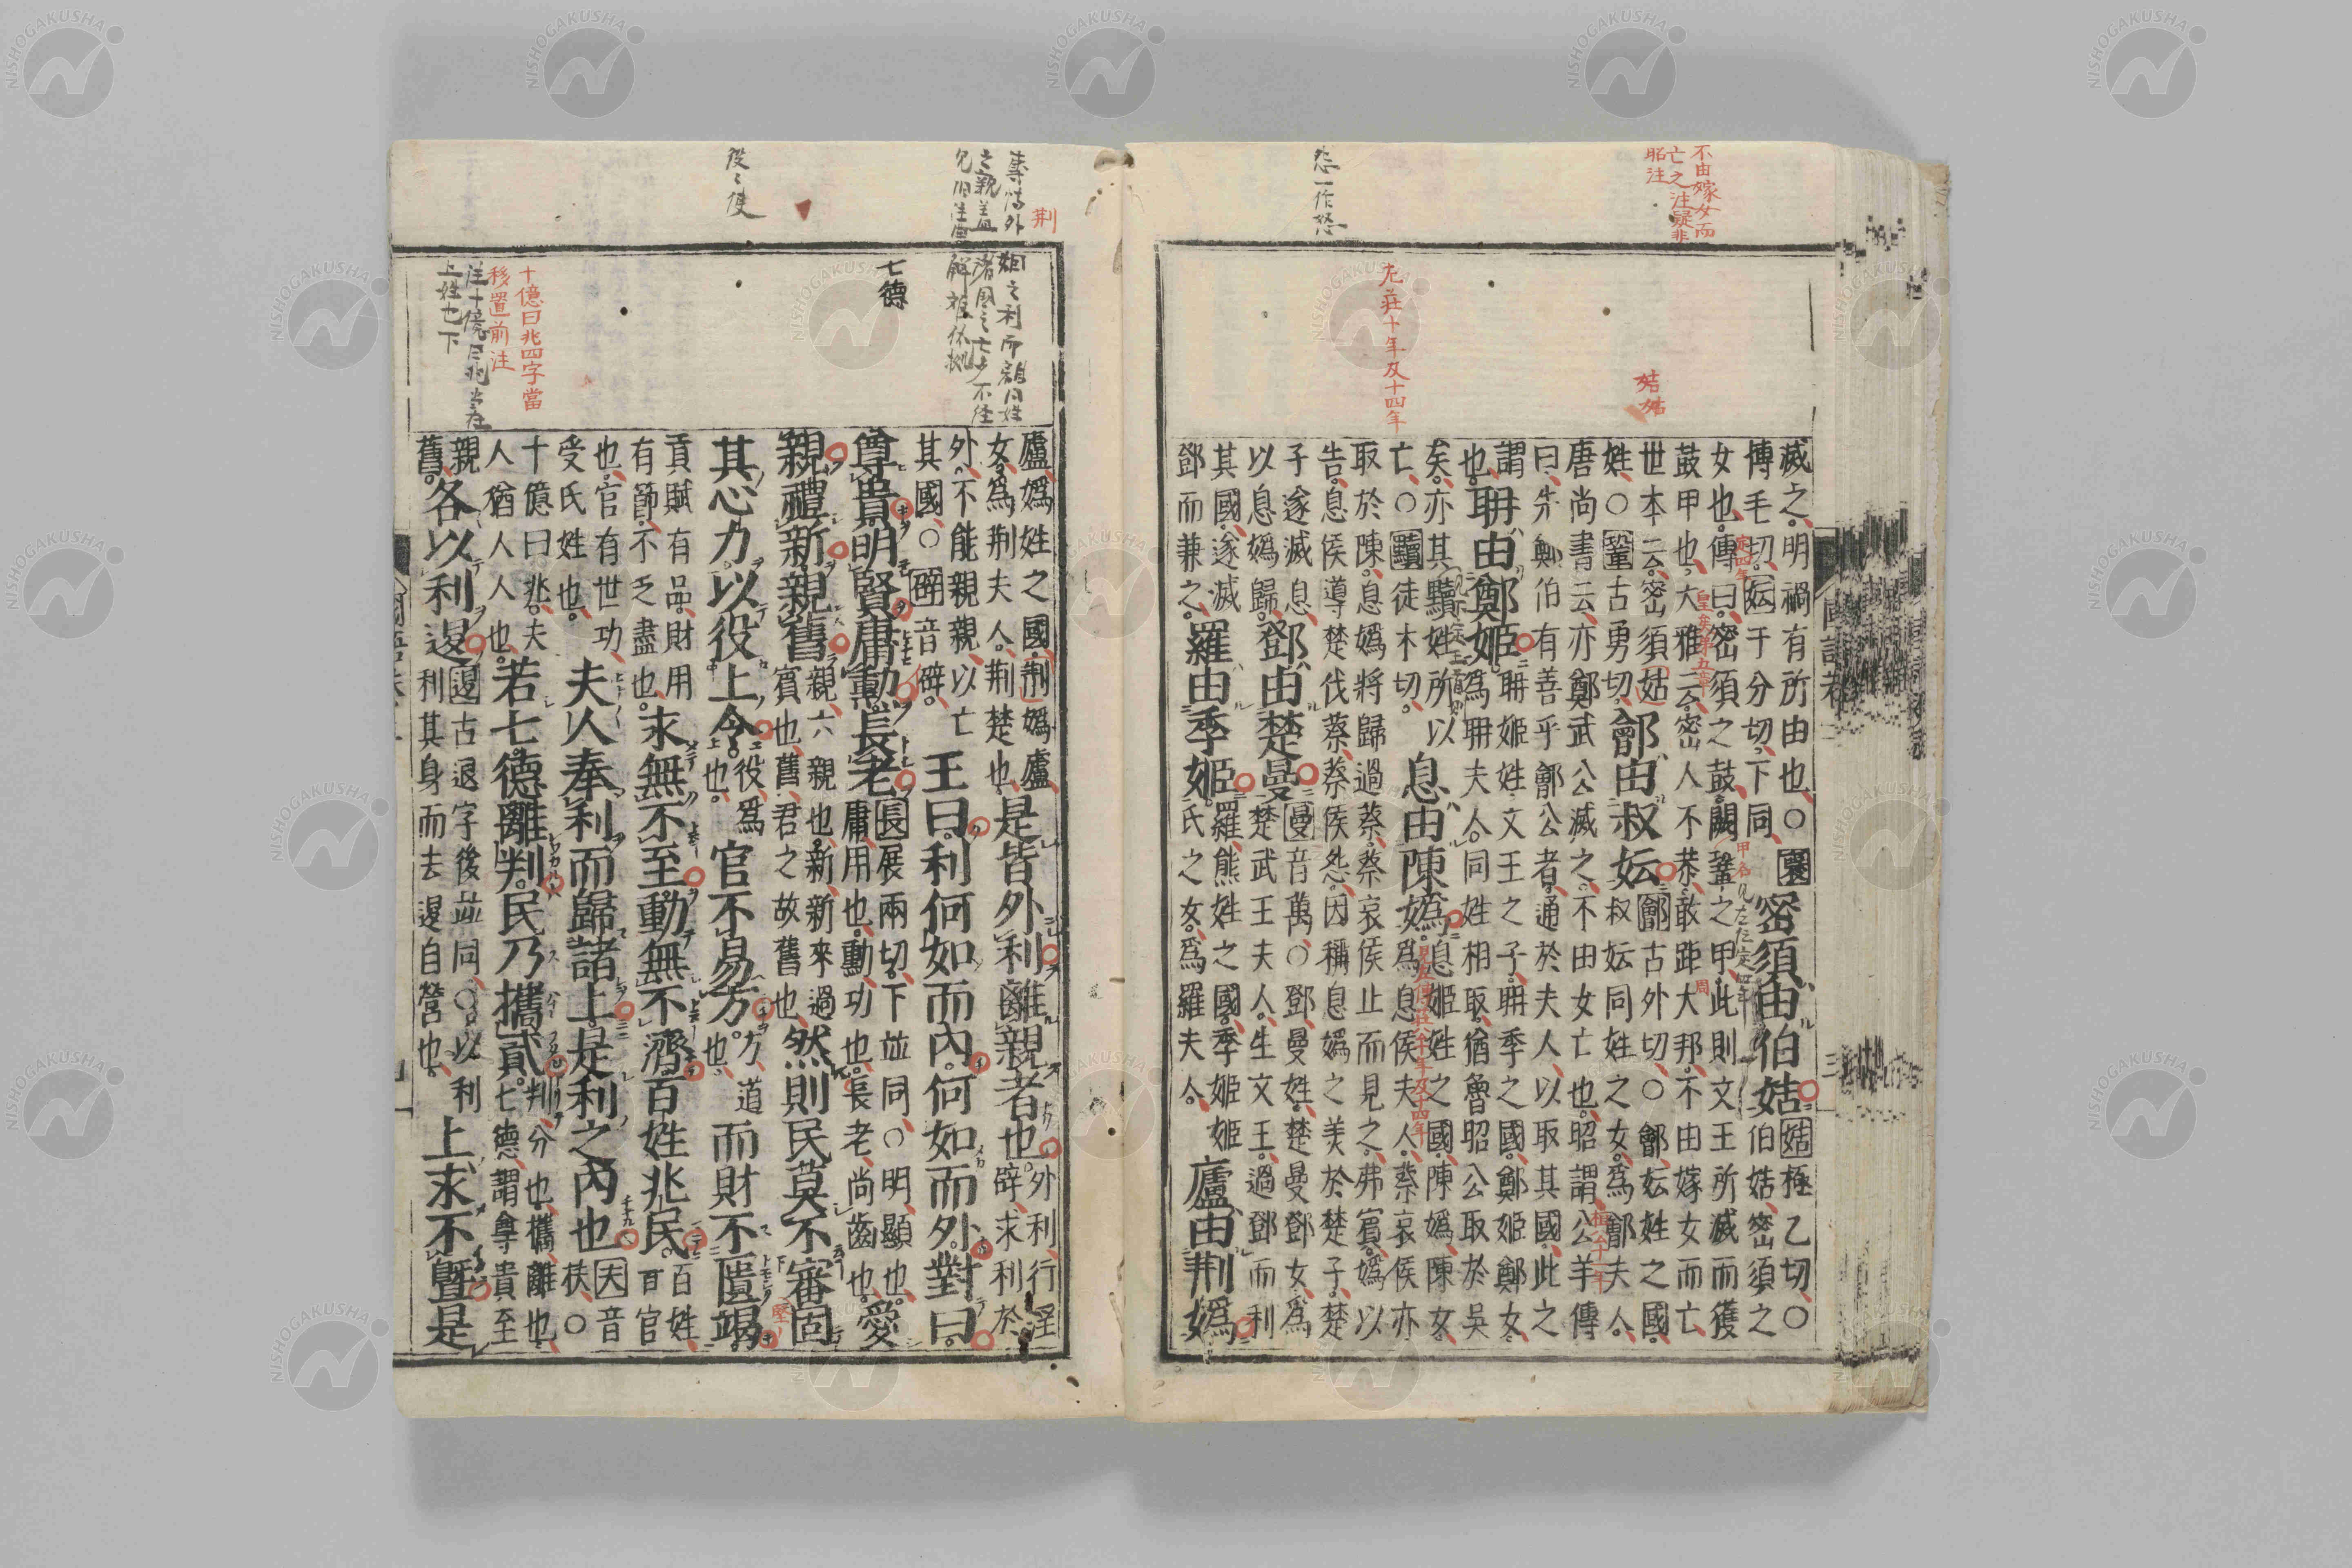 不由嫁女而
亡之注疑非
昭注
姞姞
左莊十年及十四年
怨一作怒
滅之、明禍有所由也、○
傳毛切。妘于分切、下同、
密須由伯姞
姞極乙切、○
伯姞、密須之
女也。傳曰、密須之鼓、闕鞏之甲、此則文王所滅而獲
鼓甲也、大雅云、密人不恭、敢距大邦、不由嫁女而亡、
世本云、密須姞
姓、○鞏古勇切、
鄶由叔妘
鄶古外切、○鄶、妘姓之國、
叔妘同姓之女。為鄶夫人。
唐尚書云、亦鄭武公滅之、不由女亡也。昭謂、公羊傳
曰、先鄭伯有善乎鄶公者、通於夫人、以取其國、此之
謂
也、
聃由鄭姬
聃姬姓、文王之子、聃季之國、鄭姬鄭女、
為聃夫人。同姓相取、猶魯昭公取於吳
矣、亦其黷姓所以
亡、○黷徒木切。
息由陳媯
息姬姓之國、陳媯、陳女、
為息侯夫人、蔡哀侯亦
取於陳、息媯將歸過蔡、蔡哀侯止而見之、弗賓、媯以
告、息侯導楚伐蔡、蔡侯怨、因稱息媯之美於楚子、楚
子遂滅息、
以息媯歸。
鄧由楚曼
曼音萬○鄧、曼姓、楚曼鄧女、為
楚武王夫人、生文王、過鄧而利
其國、遂滅
鄧而兼之、
羅由季姬
羅、熊姓之國、季姬姬
氏之女、為羅夫人、
盧由荊媯
荊
七德
役役使
十億曰兆四字當
移置前注
盧、媯姓之國、荊媯、盧
女、為荊夫人。荊楚也、
是皆外利離親者也。
外利、行淫
辟、求利於
外。不能親親以亡
其國、○辟音僻、
王曰、利何如而內、何如而外、對曰、
尊貴、明賢、庸勳、長老、
長展兩切、下並同、○明、顯也、
庸、用也、勳、功也、長老、尚齒也、
愛
親、禮新、親舊
親、六親也、新、新來過
賓也、舊、君之故舊也、
然則民莫不審固
其心力、以役上令、
役、為
也、
官不易方、
方、道
也、
而財不匱竭、
貢賦有品、財用
有節、不乏盡也、
求無不至、動無不濟、百姓兆民、
百姓、
百官
也、官有世功、
受氏姓也、
夫人奉利而歸諸上、是利之內也
夫音
扶、○
十億曰兆、夫
人猶人人也、
若七德離判、民乃攜貳、
判、分也、攜、離也、
七德、謂尊貴至
親
舊、
各以利退
退古退字後並同、○以利
利其身而去退自營也、
上求不暨、是